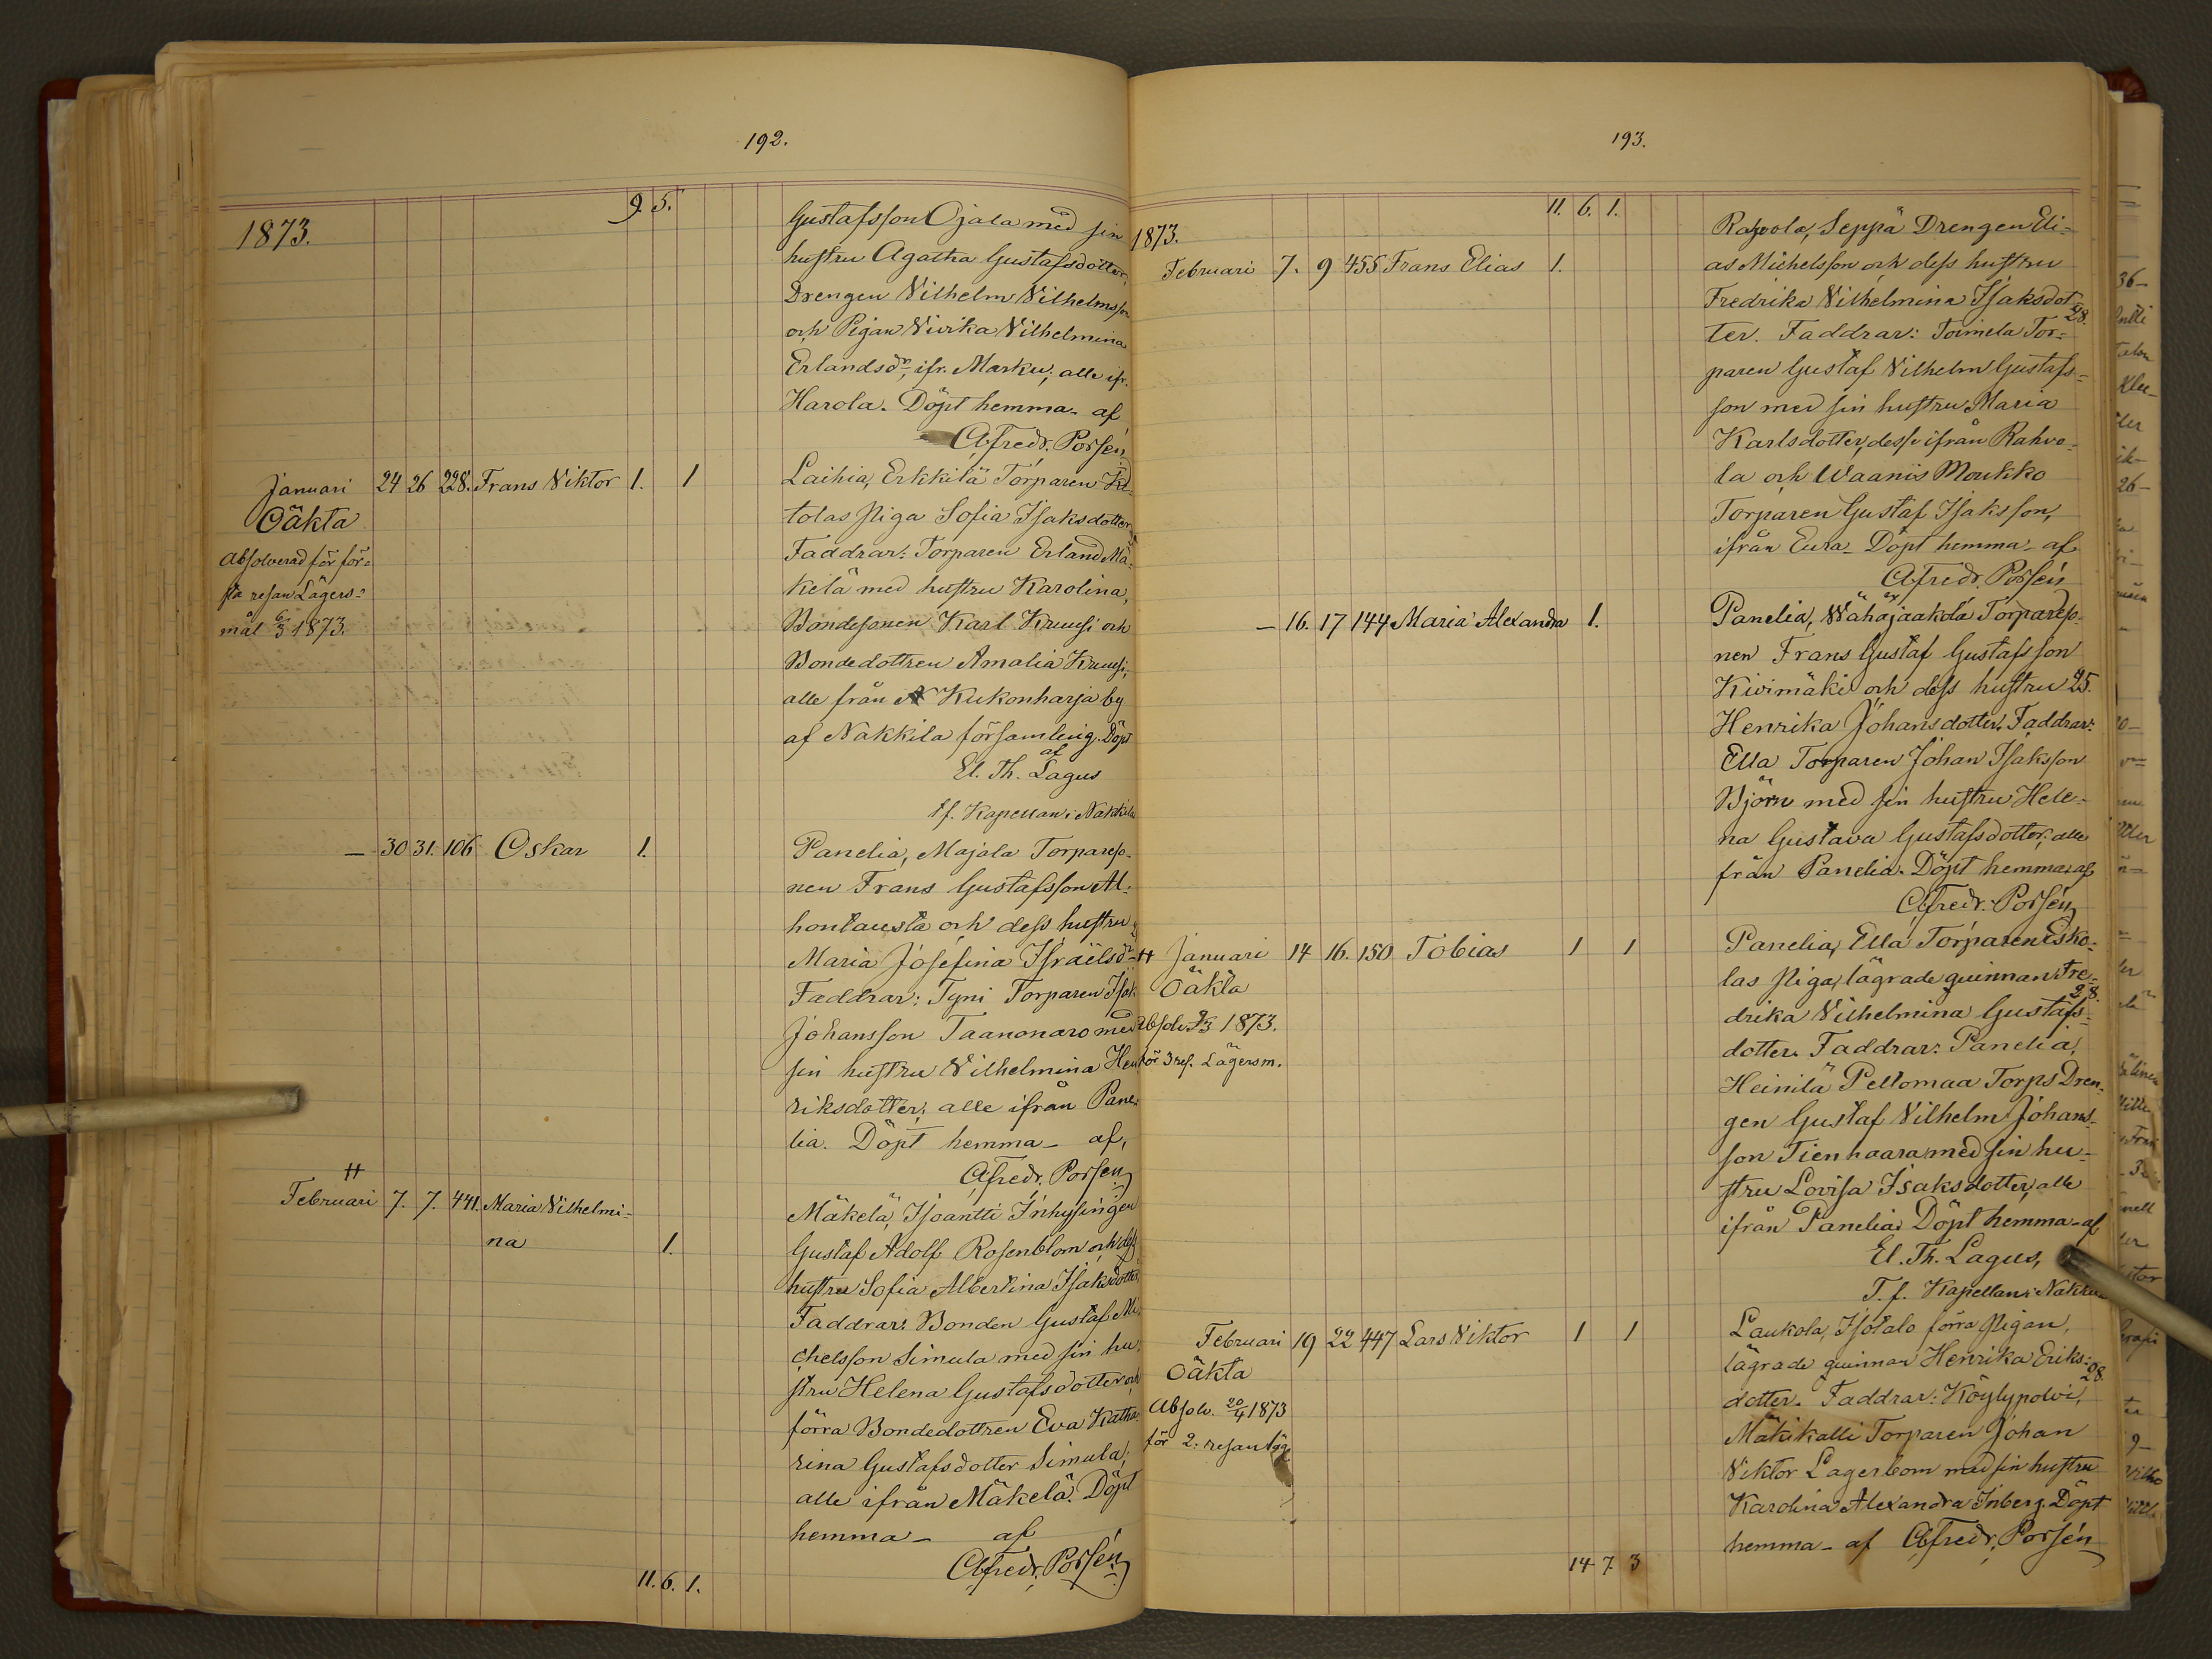 192.
9. 5.
1873.
Gustafsson Ojala med sin
hustru Agatha Gustafsdotter,
Drengen Vilhelm Vilhelmsson
och Pigan Vivika Vilhelmina
Erlandsdr, ifr. Marku; alle ifr.
Harola. Döpt hemma af
Afredr. Porsén
Januari 24 26 228. Frans Viktor 1. 1
Oäkta
Absolverad för för-
sta resan Lägers-
mål 6/3 1873.
Laihia, Erkkilä Torparen
tolas Piga Sofia Isaksdotter.
Faddrar: Torparen Erland Mä-
kelä med hustru Karolina,
Bondesonen Karl Kruusi och
Bondedottren Amalia Kruusi,
alle från Kukonharja by
af Nakkila församling. Döpt
af
El. Th. Lagus
t.f. Kapellan i Nakkila
— 30 31. 106 Oskar 1.
Panelia, Majala Torpareso-
nen Frans Gustafsson Al-
hontausta och dess hustru
Maria Josefina Israëlsdr
Faddrar: Tyni Torparen Isak
Johansson Taanonaro med
sin hustru Vilhelmina Hen-
riksdotter; alle ifrån Pane-
lia. Döpt hemma — af,
Afredr. Porsén
Februari 7. 7. 441. Maria Vilhelmi-
na 1.
Mäkelä, Isoantti Inhysingen
Gustaf Adolf Rosenblom och dess
hustru Sofia Albertina Isaksdotter,
Faddrar: Bonden Gustaf Mi-
chelsson Simula med sin hu-
stru Helena Gustafsdotter och
förra Bondedottren Eva Katha-
rina Gustafsdotter Simula;
alle ifrån Mäkelä. Döpt
hemma — af
Afredr. Porsén
11. 6. 1.
193.
11. 6. 1.
1873.
Februari 7. 9 455 Frans Elias 1.
Rahvola, Seppä Drengen Eli-
as Michelsson och dess hustru
Fredrika Vilhelmina Isaksdot-
28.
ter. Faddrar: Toimela Tor-
paren Gustaf Vilhelm Gustafs-
son med sin hustru Maria
Karlsdotter, desse ifrån Rahvo-
la och Waanis Moukko
Torparen Gustaf Isaksson,
ifrån Eura. Döpt hemma — af
Afredr. Porsén
— 16. 17 144 Maria Alexandra 1.
Panelia, Wähäjaakola Torpareso-
nen Frans Gustaf Gustafsson
Kivimäki och dess hustru 25.
Henrika Johansdotter. Faddrar:
Ella Torparen Johan Isaksson
Björn med sin hustru Hele-
na Gustava Gustafsdotter; alle
från Panelia. Döpt hemma af
Afredr. Porsén
Januari 14 16. 150 Tobias 1 1
Oäkta
Absolv. 9/3 1873.
för 3 res. Lägersm.
Panelia, Ella Torparen Esko-
las Piga, lägrade quinnan Fre-
28.
drika Vilhelmina Gustafs-
dotter. Faddrar: Panelia,
Heinilä Peltomaa Torps Dren-
gen Gustaf Vilhelm Johans-
son Tienhaara med sin hu-
stru Lovisa Isaksdotter, alle
ifrån Panelia. Döpt hemma — af
El. Th. Lagus,
T. f. Kapellan i Nakkila
Februari 19 22 447 Lars Viktor 1 1
Oäkta
Absolv. 20/4 1873
för 2. resan läg
Laukola, Isotalo förra Pigan,
lägrade quinnan Henrika Eriks-
28.
dotter. Faddrar: Köylypolvi,
Mäkikalli Torparen Johan
Viktor Lagerbom med sin hustru
Karolina Alexandra Inberg. Döpt
hemma — af Afredr. Porsén
14 7. 3